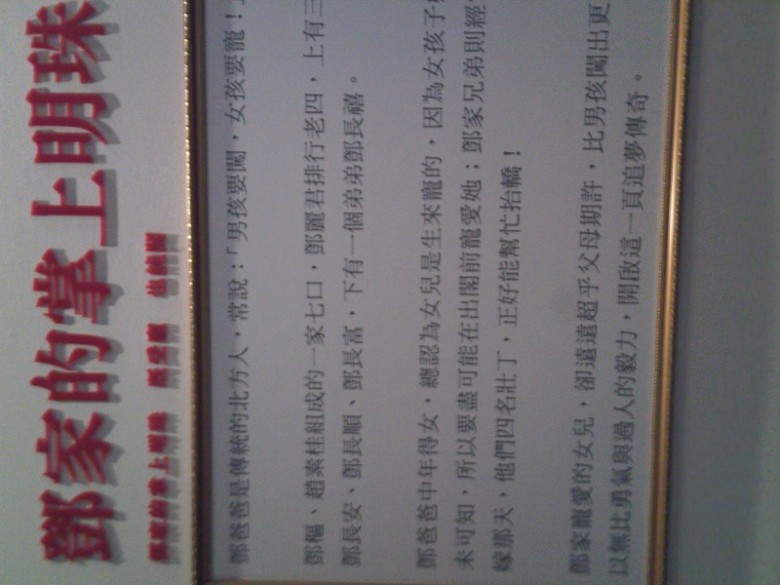 鄧家的掌上明珠
鄧爸爸是傳統的北方人，常說：「男孩要闖，女孩要寵！」
鄧樞、趙素桂組成的一家七口，鄧麗君排行老四，上有三
鄧長安、鄧長順、鄧長富，下有一個弟弟鄧長禧。
鄧爸爸中年得女，總認為女兒是生來寵的，因為女孩子
未可知，所以要盡可能在出閣前寵愛她；鄧家兄弟則經
嫁那天，他們四名壯丁，正好能幫忙抬轎！
鄧家寵愛的女兒，卻遠遠超乎父母期許，比男孩闖出更
以無比勇氣與過人的毅力，開啟這一頁追夢傳奇。